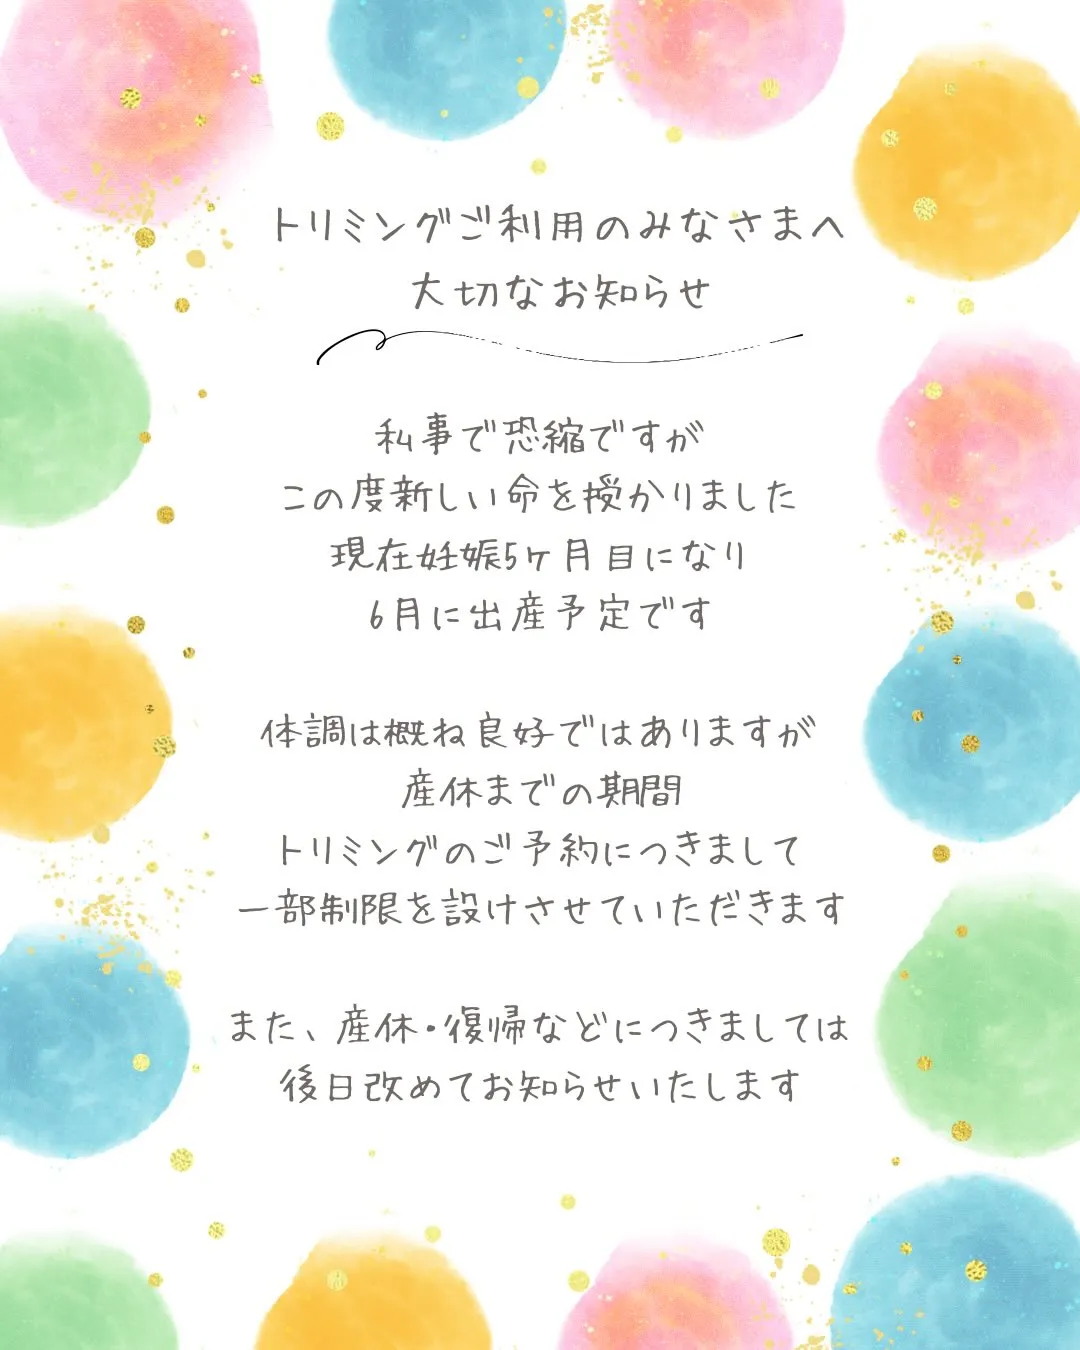 トリミングご利用のみなさまへ
大切なお知らせ
私事で恐縮ですが
この度新しい命を授かりました
現在妊娠5ヶ月目になり
6月に出産予定です
体調は概ね良好ではありますが
産休までの期間
トリミングのご予約につきまして
一部制限を設けさせていただきます
また、産休・復帰などにつきましては
後日改めてお知らせいたします